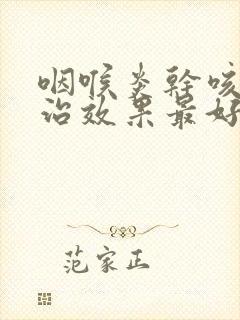 咽喉炎干咳
治效果最好
范家正